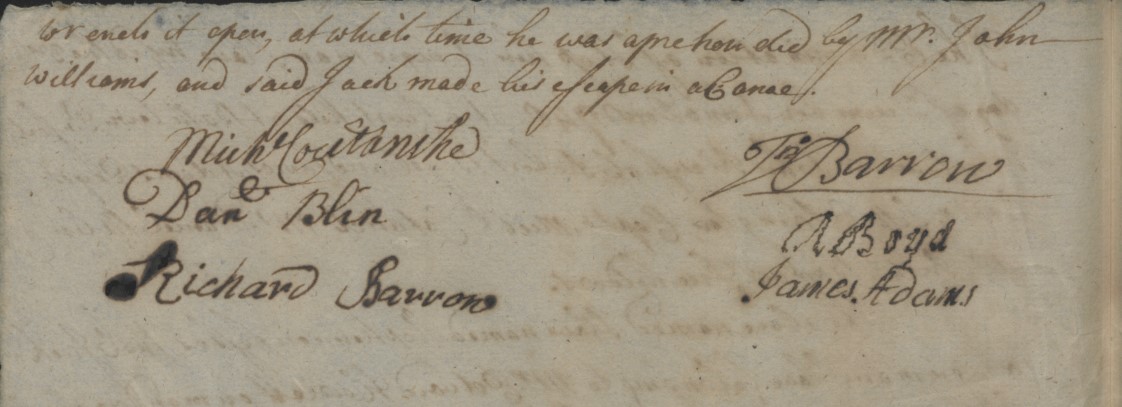 wrench it open, at which time he was aprehended by Mr. John
Williams, and said Jack made his escape in a Canoe.
Michl Coutanche
Danl Blin
Richard Barrow
Jno Barrow
R Boyd
James Adams